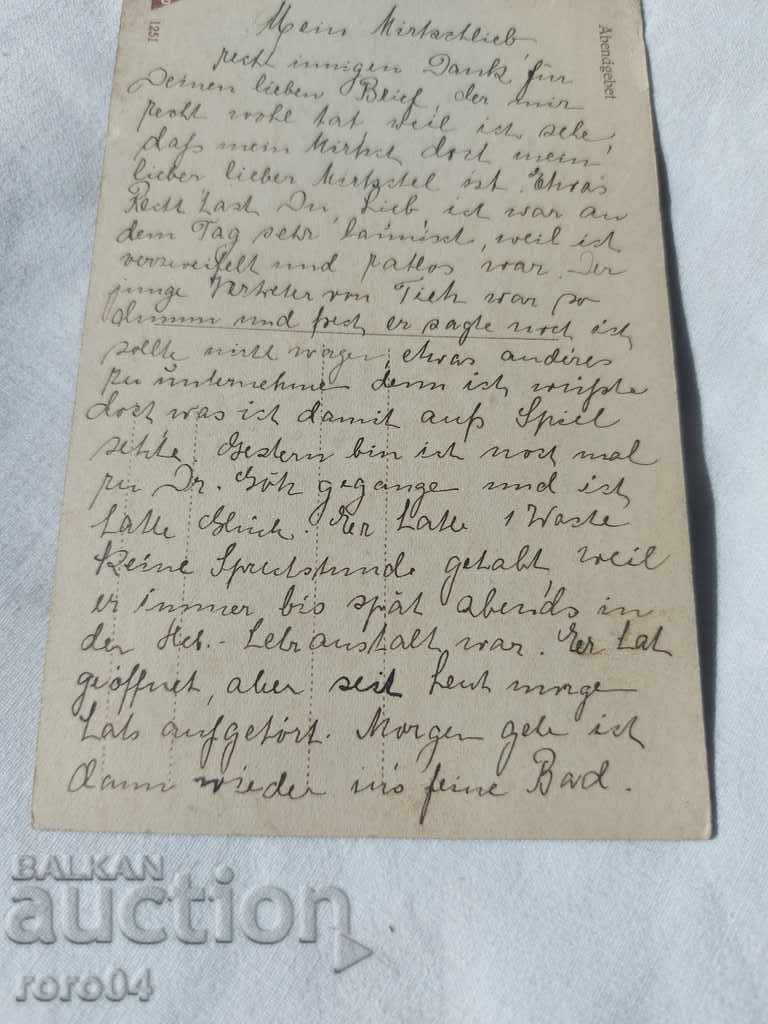 1251
Abendgebet
Mein Mirkschlieb,
recht innigen Dank für
Deinen lieben Brief, der mir
recht wohl tat weil ich sehe,
daß mein Mirksch doch mein
lieber lieber Mirkschel ist. Etwas
Recht hast Du, Lieb, ich war an
dem Tag sehr launisch, weil ich
verzweifelt und ratlos war. Der
junge Vertreter von Tieh war so
dumm und frech, er sagte noch ich
sollte nicht wagen, etwas anderes
zu unternehme denn ich wüßte
doch, was ich damit aufs Spiel
setzte. Gestern bin ich noch mal
zu Dr. Götz gegange und ich
hatte Glück. Er hatte 1 Woche
keine Sprechstunde gehabt, weil
er immer bis spät abends in
der Heb.-Lehranstalt war. Er hat
geöffnet, aber seit heut morge
hats aufgehört. Morgen gehe ich
dann wieder ins feine Bad.
BALKAN
auction
roro04